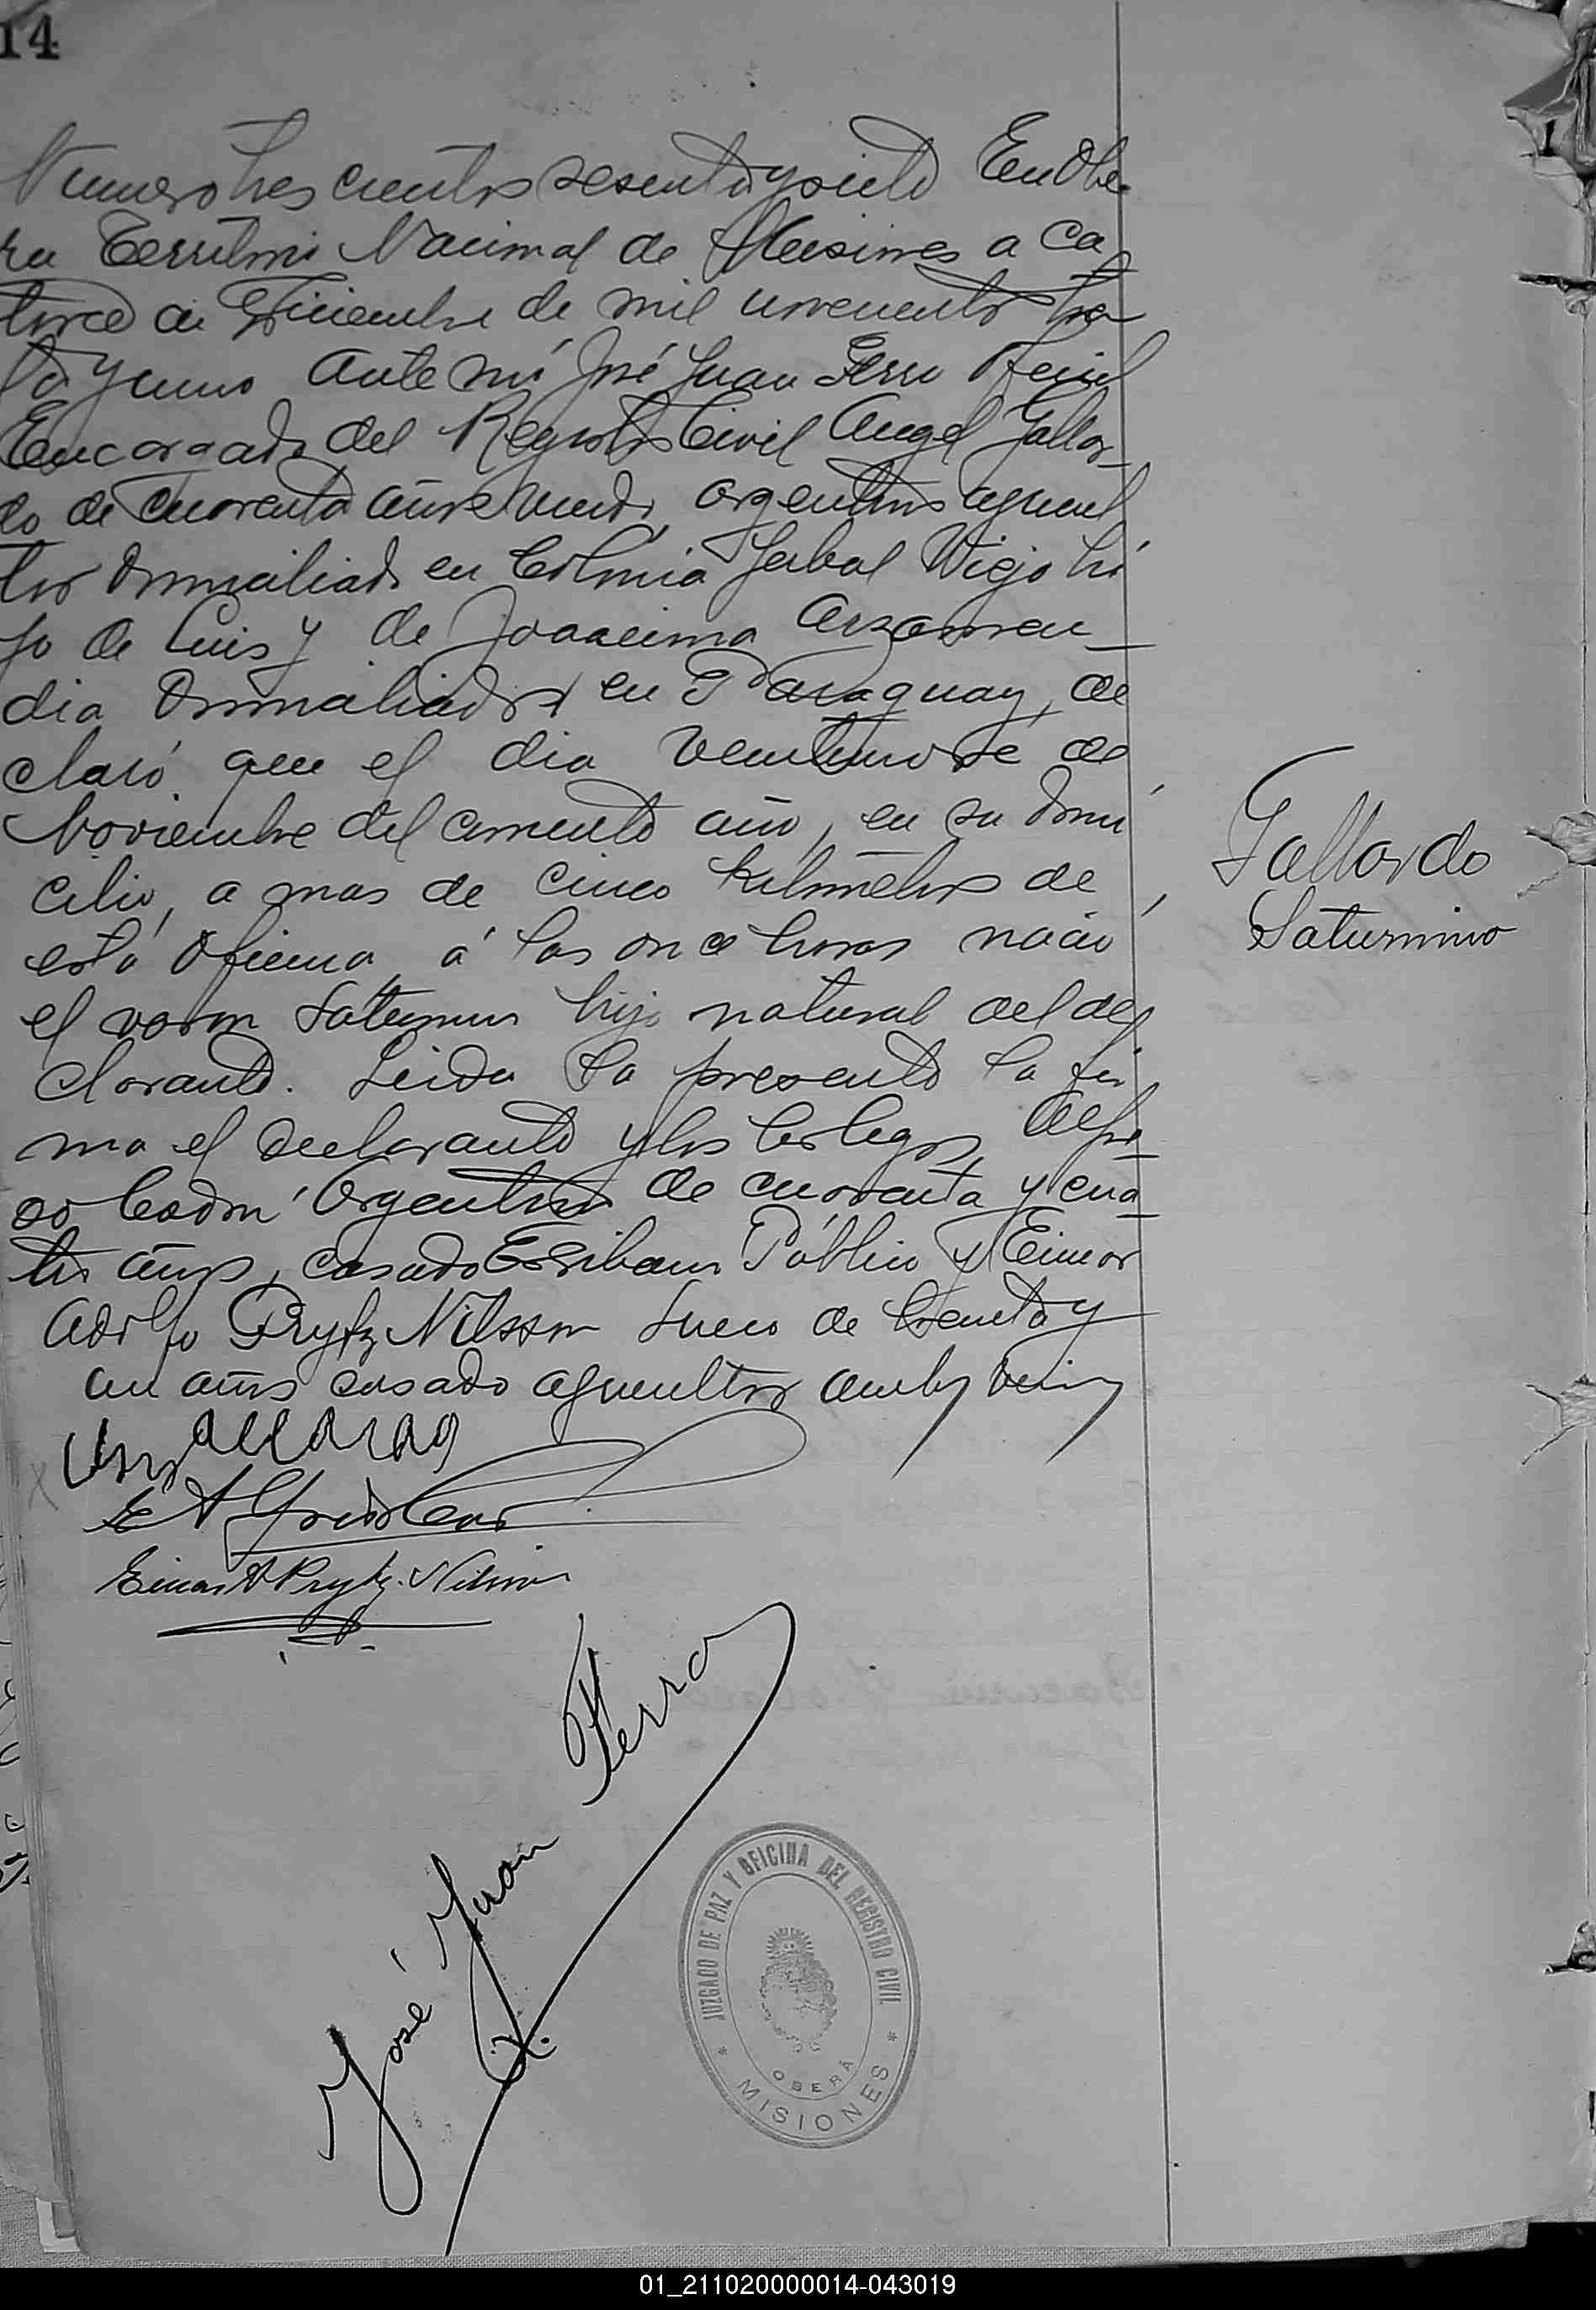 14
Numero tres cientos sesenta y siete En Obe-
ra Territorio Nacional de Misiones a ca
torce de Diciembre de mil novecientos trein
ta y uno Ante mí José Juan Ferro Oficial
Encargado del Registro Civil Angel Gallar-
do de cuarenta años viudo, argentino agricul
tor domiciliado en Colonia Yerbal Viejo hi
jo de Luis y de Joaquina Arzamen-
dia domiciliados en Paraguay, de
claró que el dia veintinueve de
Noviembre del corriente año, en su domi
cilio, a mas de cinco kilómetros de
esta Oficina, á las once horas nació
el varon Saturnino hijo natural del de
clarante. Leida la presente la fir
ma el declarante y los testigos,
Argentino de cuarenta y cua-
tro años, casado Escribano Público y Einar
Adolfo Prytz Nilsson Sueco de treinta y
un años casado agricultor
Gallardo
Saturnino
Einar A Prytz. Nilsson
José Juan Ferro
JUZGADO DE PAZ Y OFICINA DEL REGISTRO CIVIL
OBERÁ
* MISIONES *
01_211020000014-043019